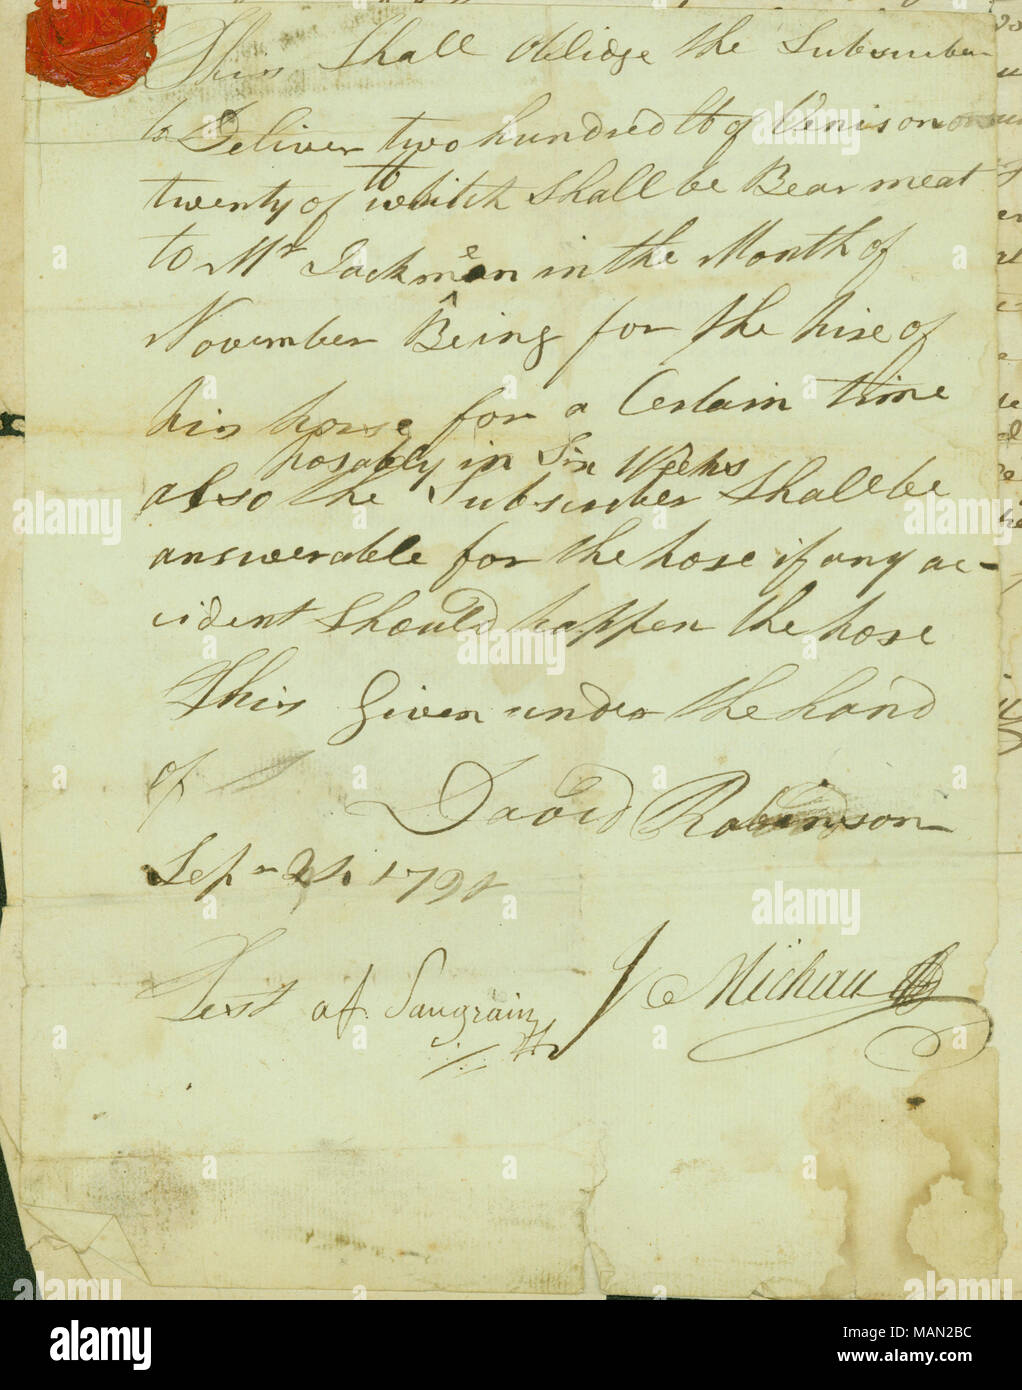 This Shall Oblidge the Subscriber
to Deliver two hundred lb of Venison or
twenty of which Shall be Bear meat
to Mr Jackmen in the Month of
November Being for the hire of
his horse for a Certain time
posably in Six Weeks
also the Subscriber Shall be
answerable for the hose if any ac-
cident Should happen the hose
This Given under the hand
of David Robinson
Sepr 21 1791
Test af. Saugrain Michau
alamy
www.alamy.com
Image ID: MAN2BC